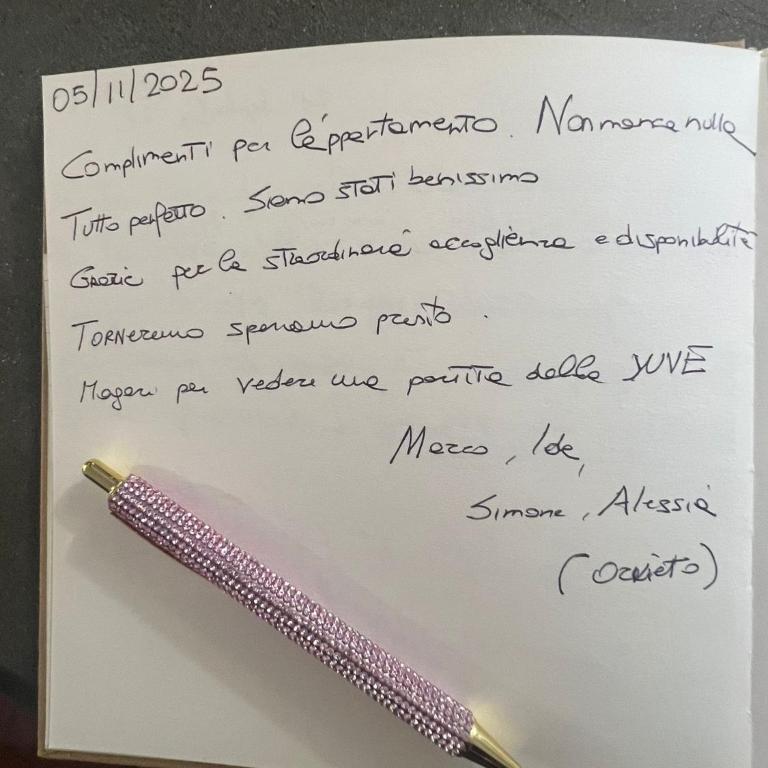 05/11/2025
Complimenti per l'appartamento. Non manca nulla
Tutto perfetto. Siamo stati benissimo
Grazie per la straordinaria accoglienza e disponibilità
Torneremo speriamo presto.
Magari per vedere una partita della JUVE
Marco, Ida,
Simone, Alessia
(Orvieto)